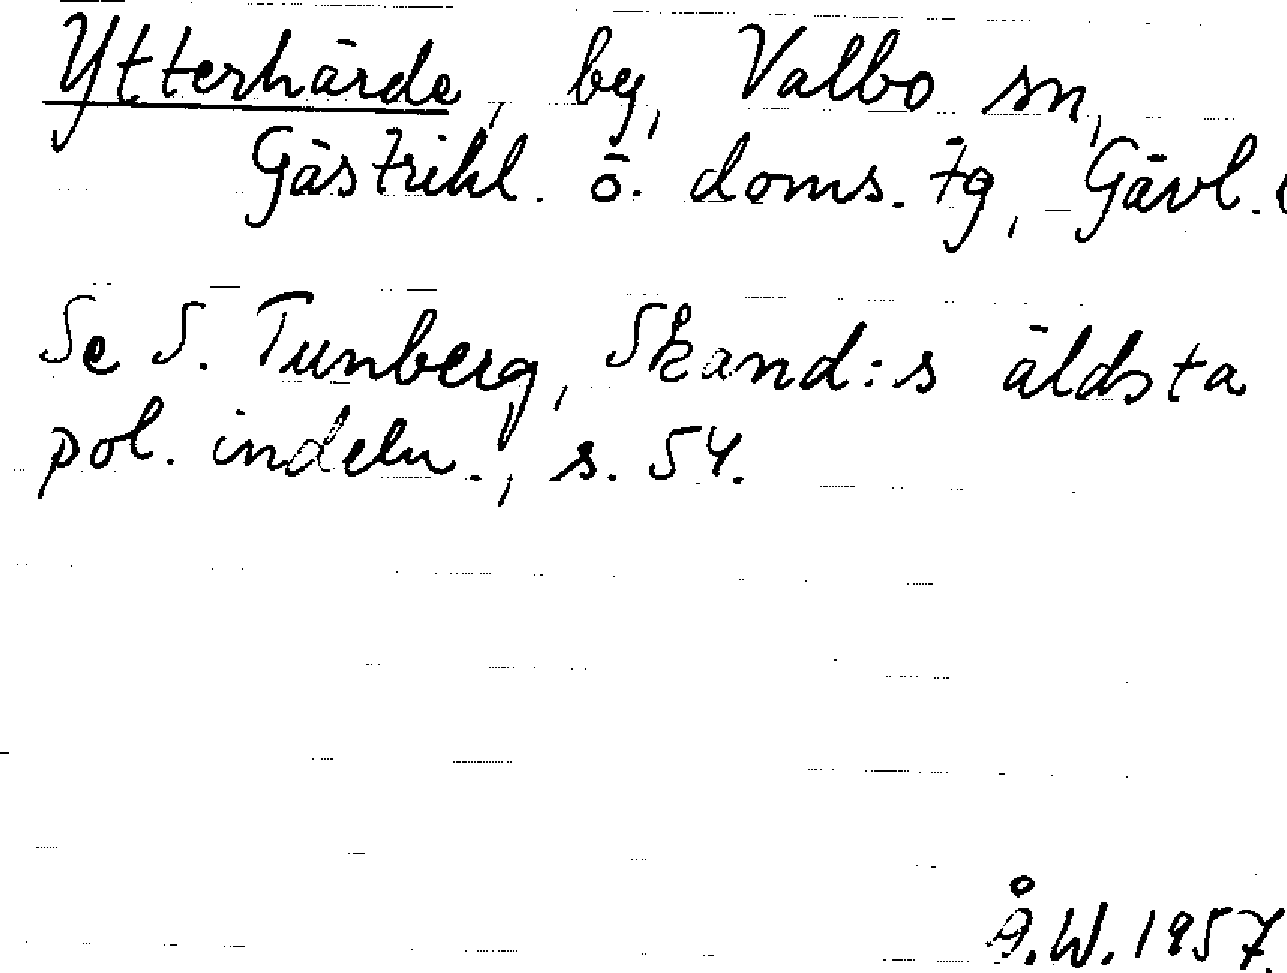 Ytterhärde, by, Valbo sn,
Gästrikl. ö. doms. tg, Gävl.
Se S. Tunberg, Skand:s äldsta
pol. indeln., s. 54.
Å.W. 1957.